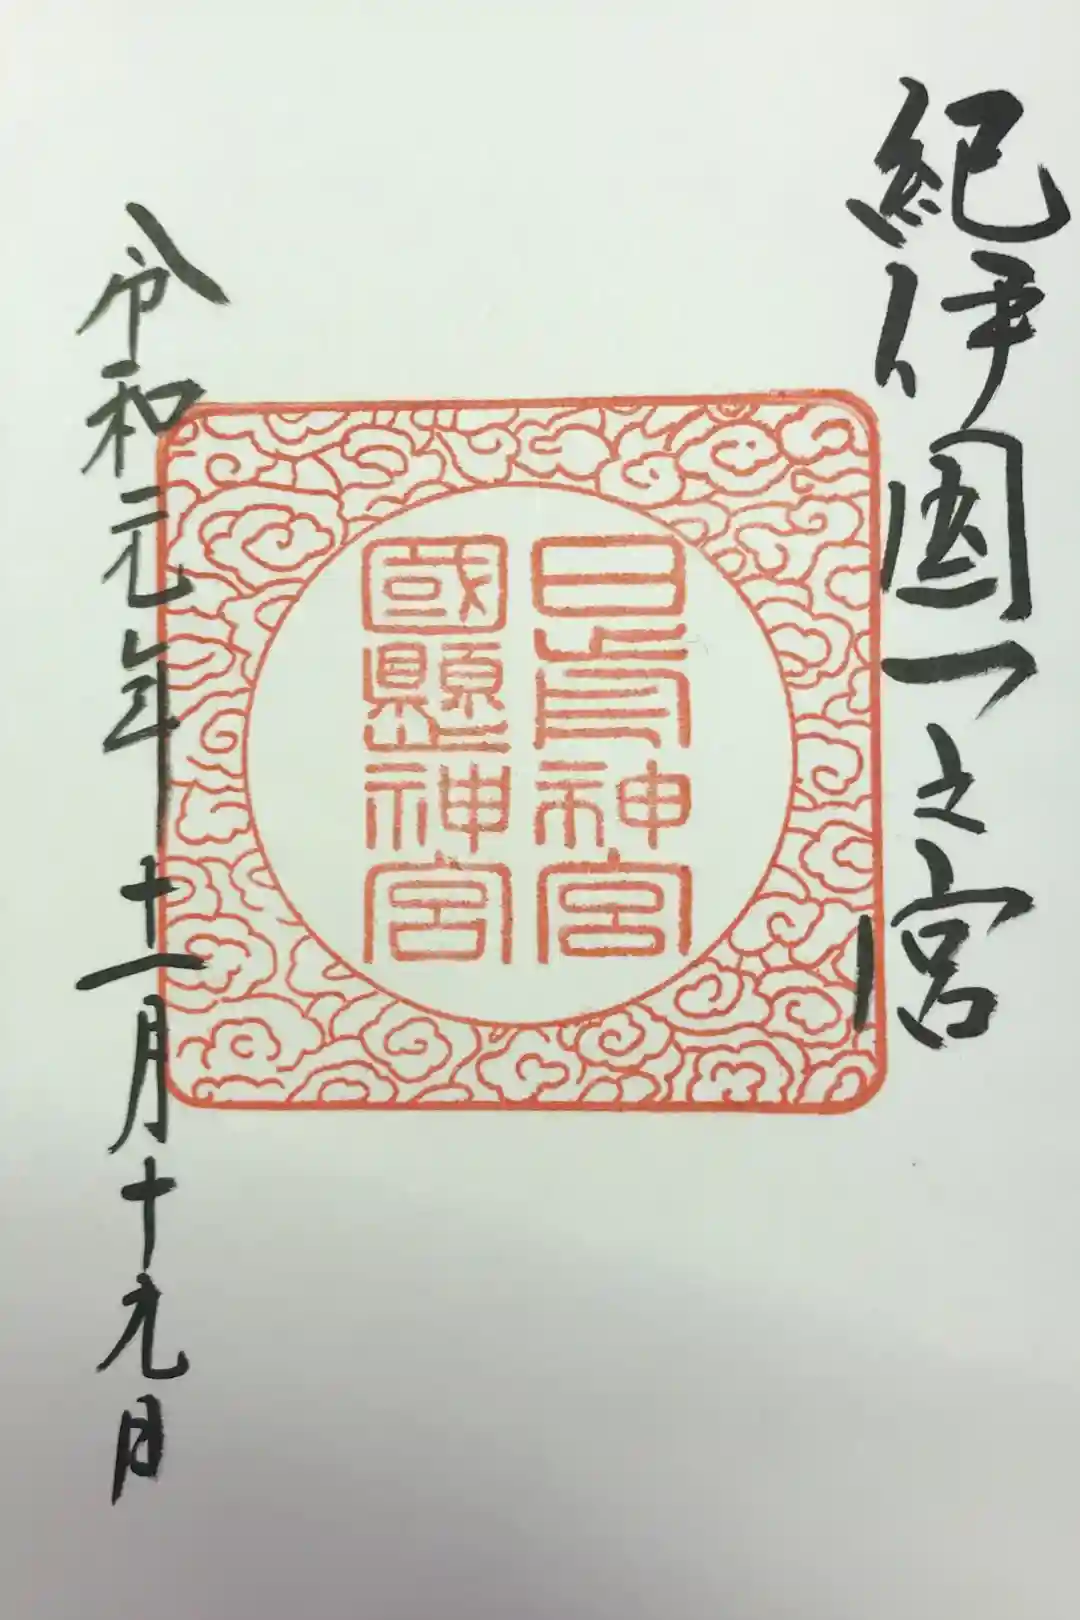 紀伊国一之宮
日前神宮
國懸神宮
令和元年十一月十九日